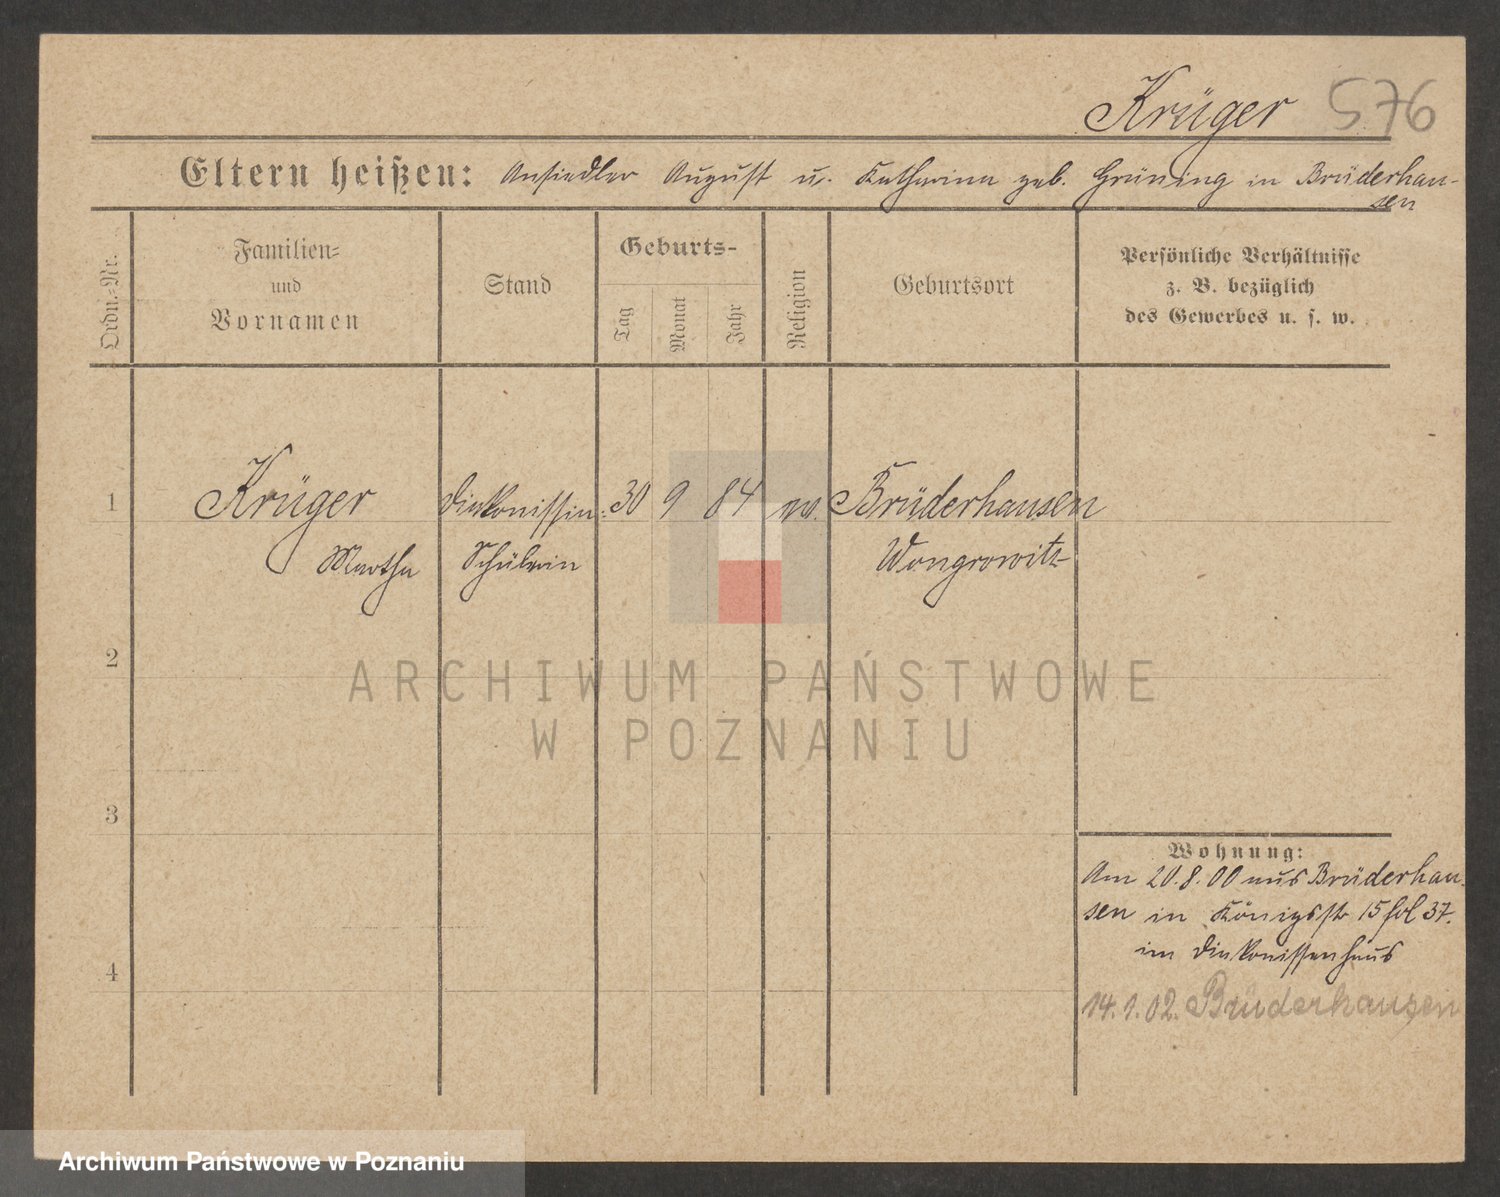 Krüger 576
Eltern heißen: Ansiedler August u. Katharina geb. Grüning in Brüderhau-
sen
Ordn.-Nr.
Familien-
und
Vornamen
Stand
Geburts-
Tag
Monat
Jahr
Religion
Geburtsort
Persönliche Verhältnisse
z. B. bezüglich
des Gewerbes u. s. w.
1 Krüger Diakonissin- 30 9 84 ev. Brüderhausen
Martha Schülerin Wongrowitz
2
3
4
Wohnung:
Am 20.8.00 aus Brüderhau-
sen in Königsstr 15 fol 37.
im Diakonissenhaus
14.1.02. Brüderhausen
ARCHIWUM PAŃSTWOWE
W POZNANIU
Archiwum Państwowe w Poznaniu